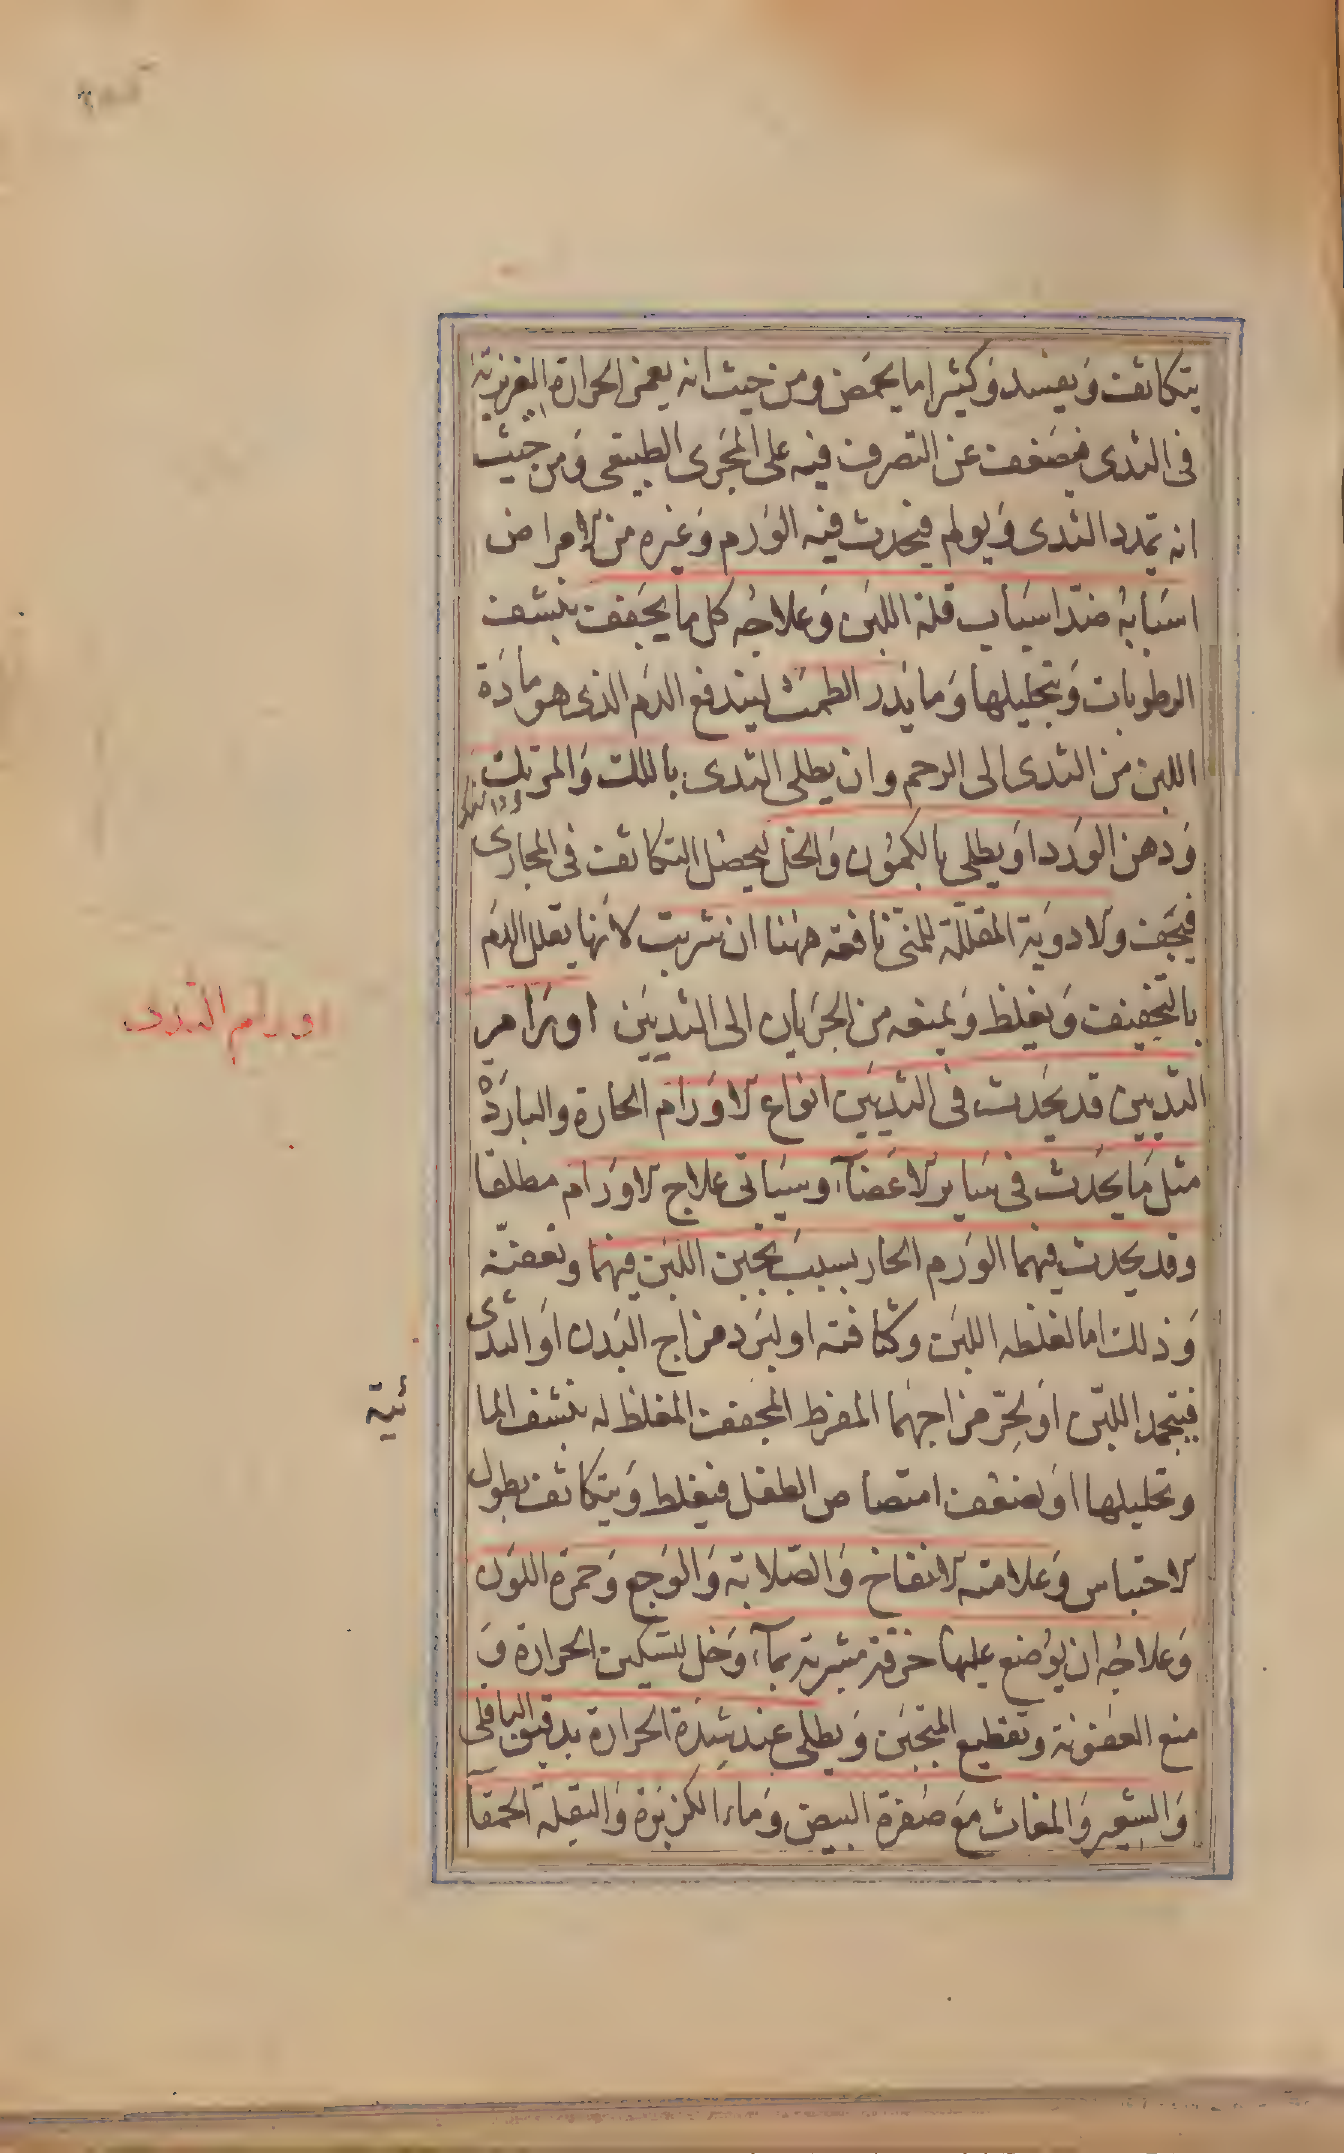 يتكاثف ويفسد وكثيرا ما يحمض ومن حيث انه يغمر الحرارة الغريزية
فى الثدى فيضعف عن التصرف فيه على المجرى الطبيعى ومن حيث
انه يمدد الثدى ويولم فيحدث فيه الورم وغيره من الامراض
اسبابه ضد اسباب قلة اللبن وعلاجه كل ما يجفف بنشف
الرطوبات وبتحليلها وما يدر الطمث ليندفع الدم الذى هو مادة
اللبن من الثدى الى الرحم وان يطلى الثدى باللك والمرتك
ودهن الورد او يطلى بالكمون والخل ليحصل التكاثف فى المجارى
فيجف والادوية المقللة للمنى نافعه ههنا ان شربت لانها يقلل الدم
بالتجفيف ويغلظ ويمنعه من الجريان الى الثديين اورام
الثديين قد يحدث فى الثديين انواع الاورام الحارة والباردة
مثل ما يحدث فى ساير الاعضآء وسياتى علاج الاورام مطلقا
وقد يحدث فيهما الورم الحار بسبب تجبن اللبن فيهما وتعفنه
وذلك اما لغلظه اللبن وكثافته او لبرد مزاج البدن او الثدى
فيتجمد اللبن او لحر مزاجهما المفرط المجفف المغلظ له بنشف الما
وتحليلها او لضعف امتصاص الطفل فيغلظ ويتكاثف بطول
الاحتباس وعلامته الانتفاخ والصلابة والوجع وحمرة اللون
وعلاجه ان يوضع عليها خرقة مشربة بمآء وخل لتسكين الحرارة و
منع العفونة وتقطيع المتجبن ويطلى عند شدة الحرارة بدقيق الباقلى
والشعير والمغاث مع صفرة البيض وماء الكزبرة والبقلة الحمقآ
اورام الثدى